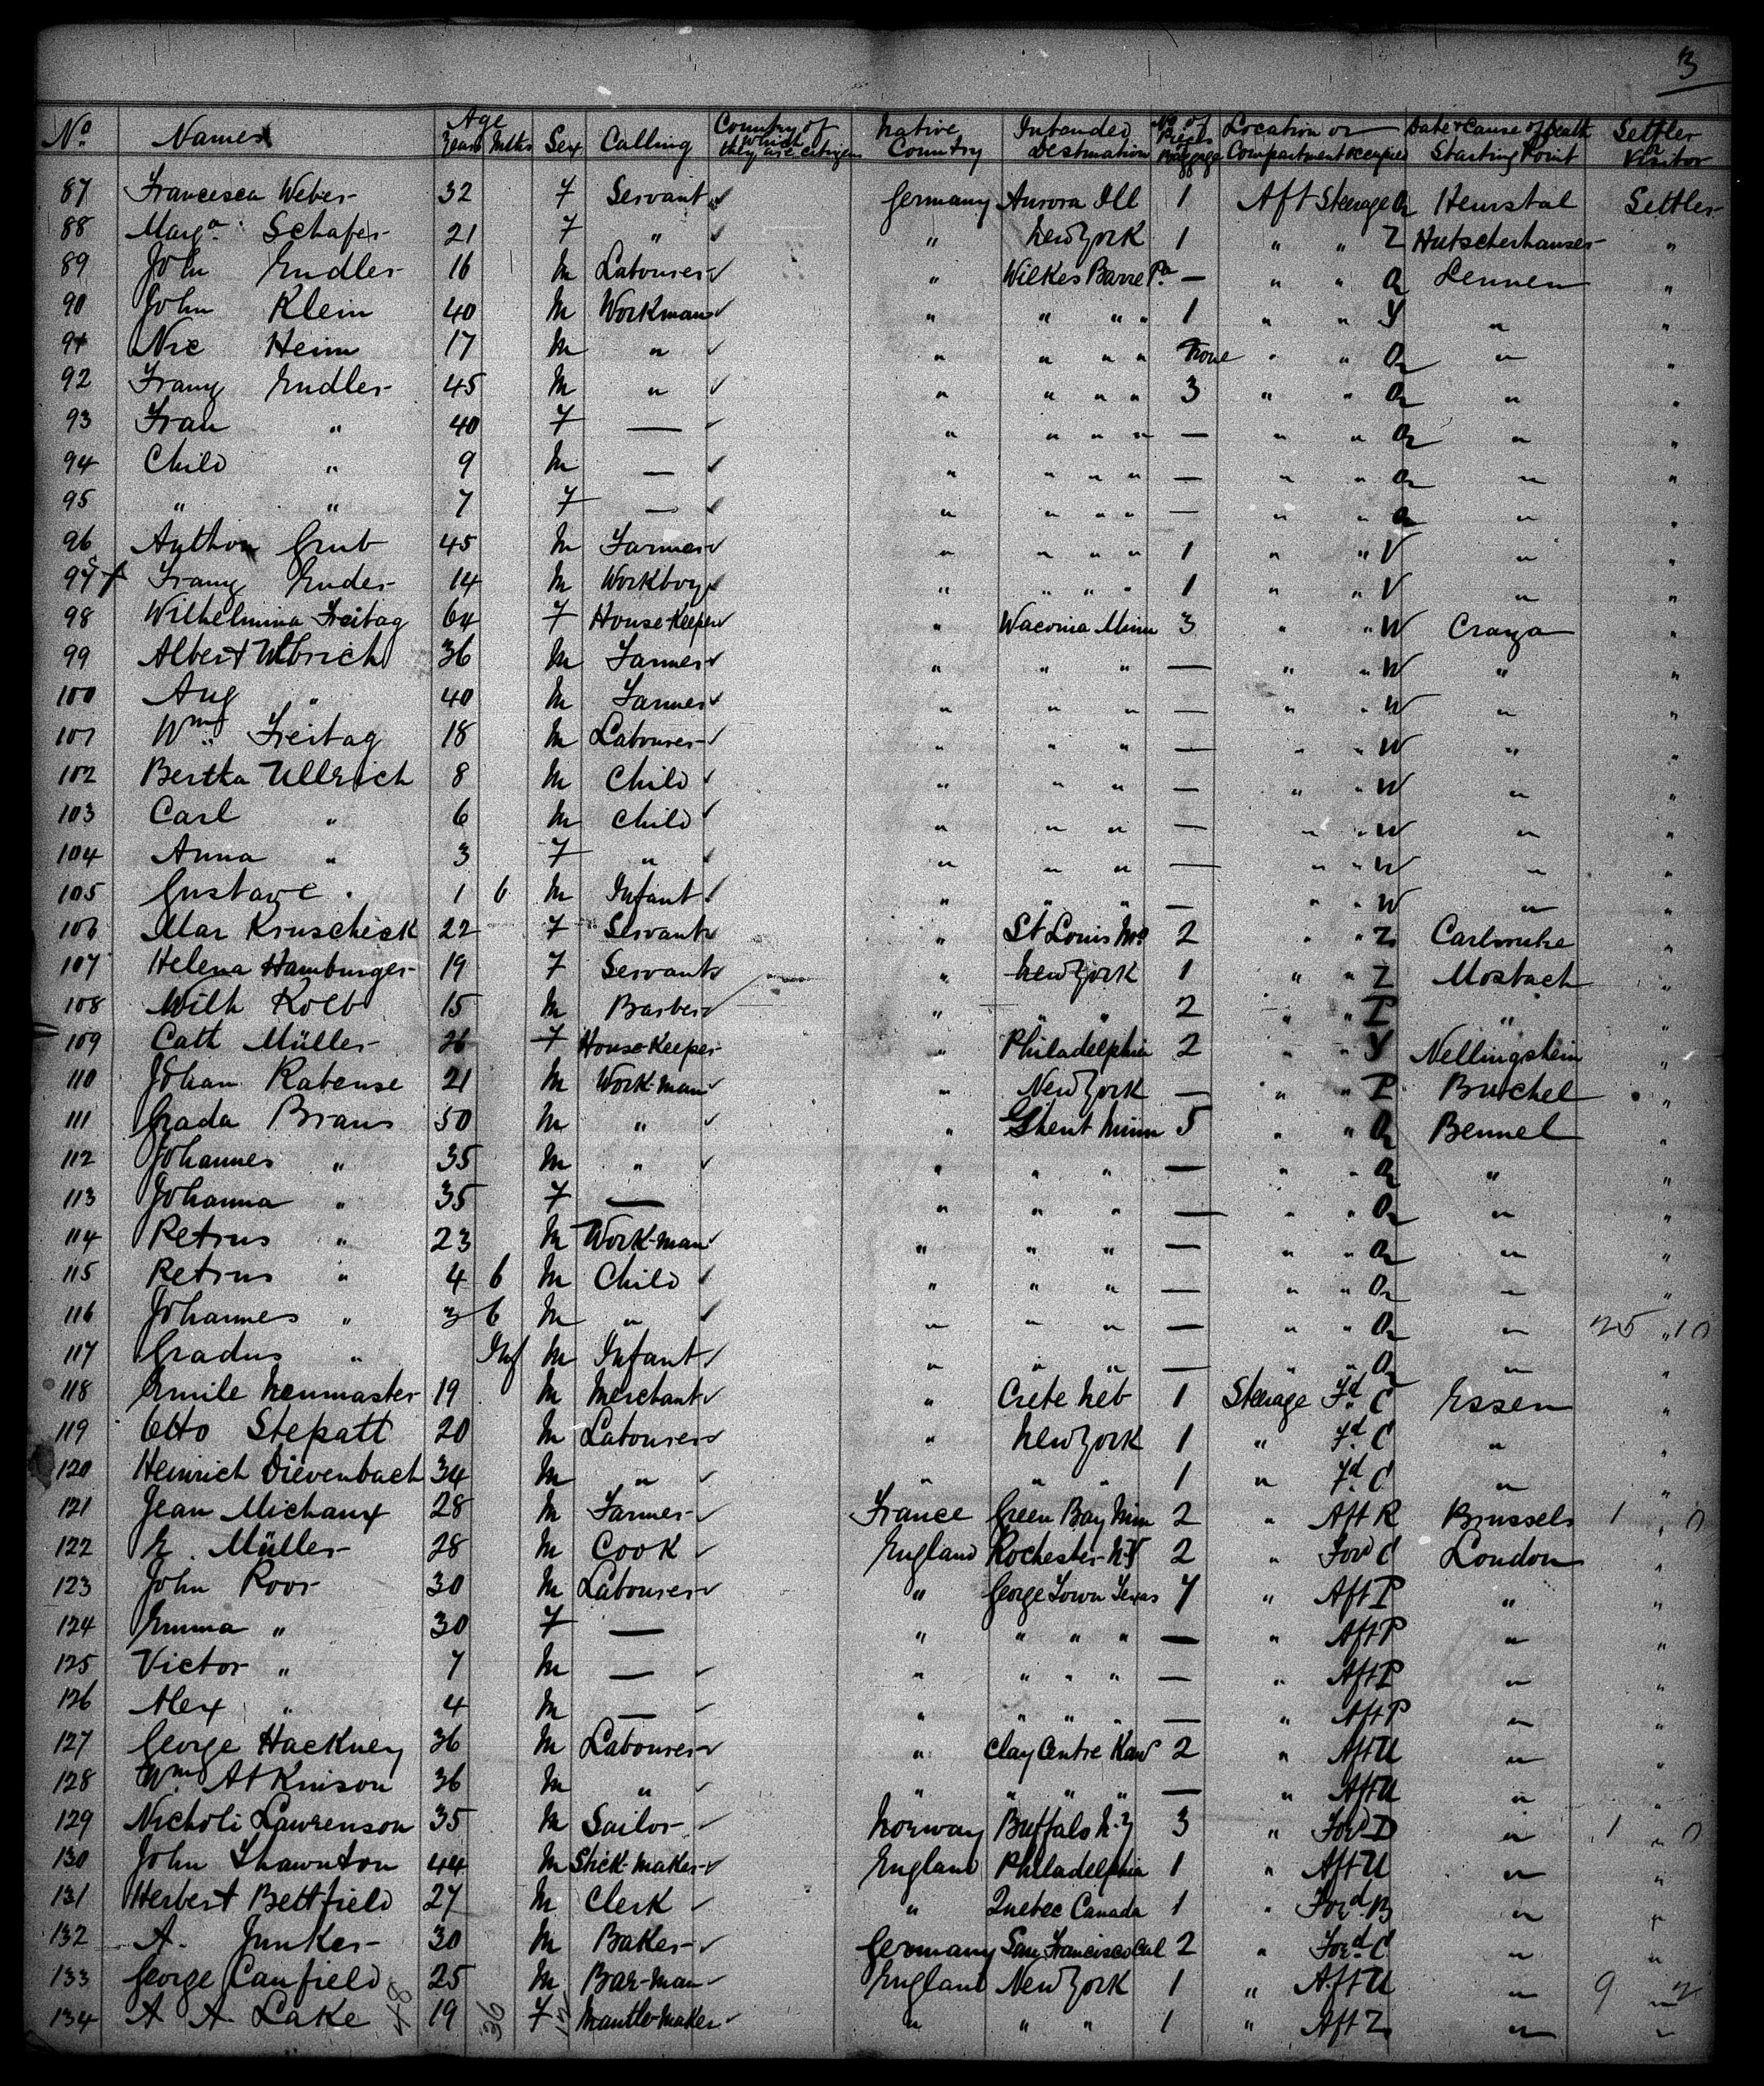 3
No. Names Age Years Mths Sex Calling Country of which they are citizens Native Country Intended Destination No of Pieces Baggage Location or Compartment occupied Date & Cause of Death Starting Point Settler or Visitor
87 Francesca Weber 32 F Servant ✓ Germany Aurora Ill 1 Aft Steerage Settler
88 Marga. Schafer 21 F " ✓ " New York 1 " " Z Hutscherhauser "
89 John Endler 16 M Labourer ✓ " Wilkes Barre Pa. — " " Lennen "
90 John Klein 40 M Workman ✓ " " " " 1 " " Y " "
91 Nic Heim 17 M " ✓ " " " " None " " " "
92 Franz Endler 45 M " ✓ " " " " 3 " " " "
93 Frau " 40 F — ✓ " " " " — " " " "
94 Child " 9 M — ✓ " " " " — " " " "
95 " " 7 F — ✓ " " " " — " " " "
96 Anthon Grub 45 M Farmer ✓ " " " " 1 " " V " "
97 Franz Ender 14 M Workboy ✓ " " " " 1 " " V " "
98 Wilhelmina Freitag 64 F House-Keeper ✓ " Waconia Minn 3 " " W Craya "
99 Albert Ulbrich 36 M Farmer ✓ " " " — " " W " "
100 Aug " 40 M Farmer ✓ " " " — " " W " "
101 Wm. Freitag 18 M Labourer ✓ " " " — " " W " "
102 Bertha Ullrich 8 M Child ✓ " " " — " " W " "
103 Carl " 6 M Child ✓ " " " — " " W " "
104 Anna " 3 F " ✓ " " " — " " W " "
105 Gustave " 1 6 M Infant ✓ " " " — " " W " "
106 Mar Kruscheck 22 F Servant ✓ " St Louis Mo 2 " " Z Carlsruhe "
107 Helena Hamburger 19 F Servant ✓ " New York 1 " " Z Mosbach "
108 Wilh Kolb 15 M Barber ✓ " " " 2 " " P " "
109 Cath Müller F House Keeper " Philadelphia 2 " " Y Nellingsheim "
110 Johan Rabense 21 M Work-man ✓ " New York — " " P Bruchel "
111 Grada Brans 50 M " ✓ " Ghent Minn 5 " " Bennel "
112 Johannes " 35 M " ✓ " " " — " " " "
113 Johanna " 35 F — " " " — " " " "
114 Petrus " 23 M Work-man ✓ " " " — " " " "
115 Petrus " 4 6 M Child ✓ " " " — " " " "
116 Johannes " 3 6 M " ✓ " " " — " " " 25 " 10
117 Gradus " Inf M Infant ✓ " " " — " " " "
118 Emile Neumaster 19 M Merchant ✓ " Crete Neb 1 Steerage Fd. C Essen "
119 Otto Stepatt 20 M Labourer ✓ " New York 1 " Fd. C " "
120 Heinrich Dievenbach 34 M " ✓ " " " 1 " Fd. C " "
121 Jean Michaux 28 M Farmer ✓ France Green Bay Minn 2 " Aft R Brussels 1 " 0
122 E. Müller 28 M Cook ✓ England Rochester N-Y 2 " Ford C London "
123 John Roor 30 M Labourer ✓ " George Town Texas 7 " Aft P " "
124 Emma " 30 F — " " " " — " Aft P " "
125 Victor " 7 M — ✓ " " " " — " Aft P " "
126 Alex " 4 M — ✓ " " " " — " Aft P " "
127 George Hackney 36 M Labourer ✓ " Clay Centre Kan 2 " Aft U " "
128 Wm Atkinson 36 M " ✓ " " " " — " Aft U " "
129 Nicholi Lawrenson 35 M Sailor ✓ Norway Buffalo N-Y 3 " Ford D " 1 " 0
130 John Thawnton 44 M Stick-maker ✓ England Philadelphia 1 " Aft U " "
131 Herbert Bettfield 27 M Clerk ✓ " Quebec Canada 1 " Ford. B " "
132 A. Junker 30 M Baker ✓ Germany San Francisco Cal 2 " Ford. C " "
133 George Canfield 25 M Bar-man England New York 1 " Aft U " 9 " 2
134 A A Lake 48 19 36 F 12 Mantle-maker " " " 1 " Aft Z " "